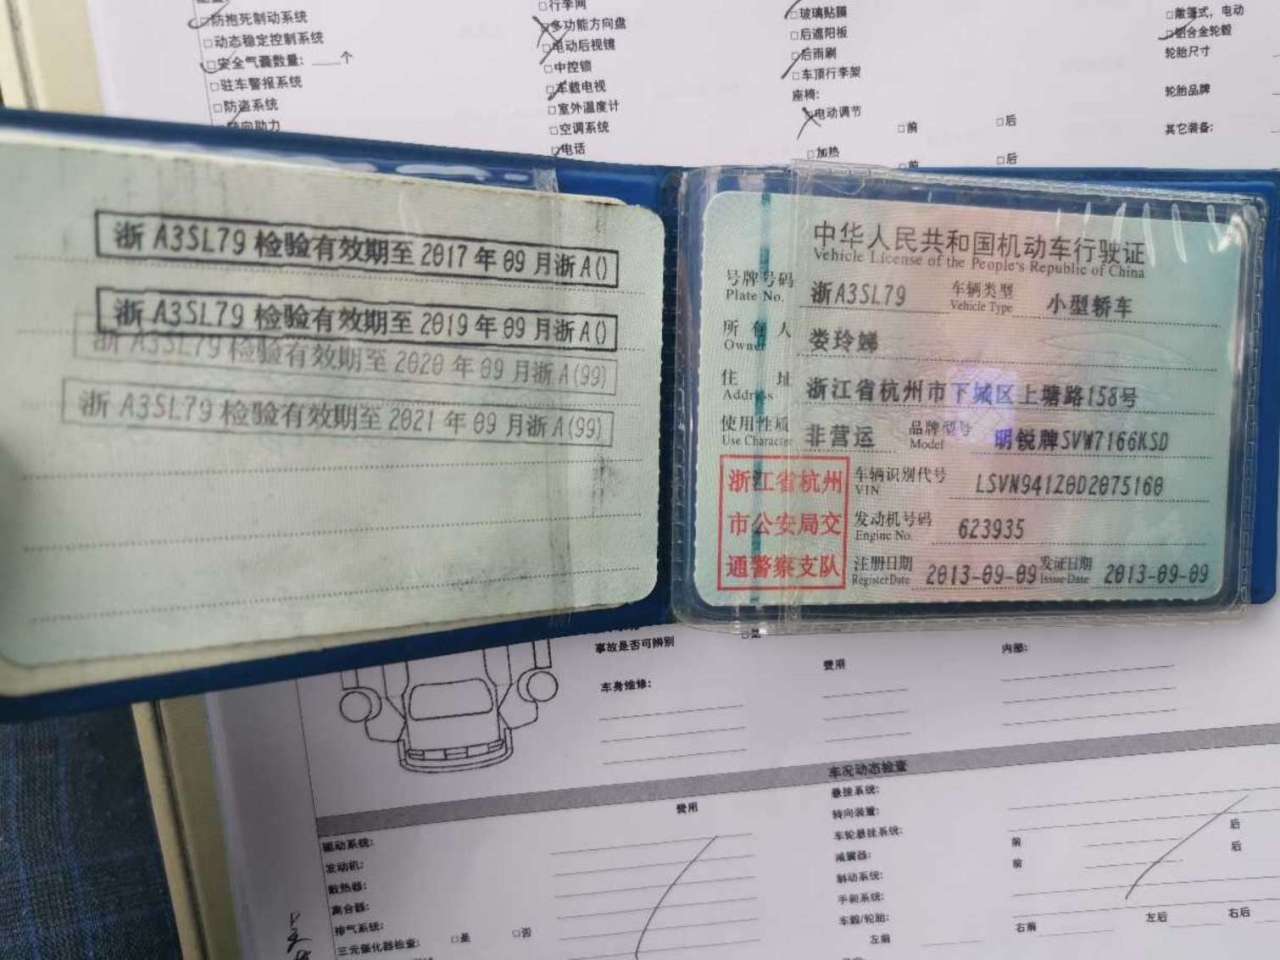 □防抱死制动系统
□动态稳定控制系统
□安全气囊数量: ____个
□驻车警报系统
□防盗系统
□行李网
□多功能方向盘
□电动后视镜
□中控锁
□车载电视
□室外温度计
□空调系统
□电话
□玻璃贴膜
□后遮阳板
□后雨刷
□车顶行李架
座椅:
□电动调节 □前 □后
□加热 □前 □后
□敞篷式，电动
□铝合金轮毂
轮胎尺寸
轮胎品牌
其它装备:
浙 A3SL79 检验有效期至 2017 年 09 月浙 A()
浙 A3SL79 检验有效期至 2019 年 09 月浙 A()
浙 A3SL79 检验有效期至 2020 年 09 月浙 A(99)
浙 A3SL79 检验有效期至 2021 年 09 月浙 A(99)
中华人民共和国机动车行驶证
Vehicle License of the People's Republic of China
号牌号码 浙A3SL79 车辆类型 小型轿车
Plate No. Vehicle Type
所有人 娄玲娣
Owner
住址 浙江省杭州市下城区上塘路158号
Address
使用性质 非营运 品牌型号 明锐牌SVW7166KSD
Use Character Model
浙江省杭州
市公安局交
通警察支队
车辆识别代号 LSVN941Z0D2075160
VIN
发动机号码 623935
Engine No.
注册日期 2013-09-09 发证日期 2013-09-09
Register Date Issue Date
事故是否可辨别
费用
内部:
车身维修:
车况动态检查
费用
驱动系统:
发动机:
散热器:
离合器:
排气系统:
三元催化器检查: □是 □否
悬挂系统:
转向装置:
车轮悬挂系统: 前 后
减震器: 前 后
制动系统:
手刹系统:
车毂/轮胎: 右前 左后 右后
左前